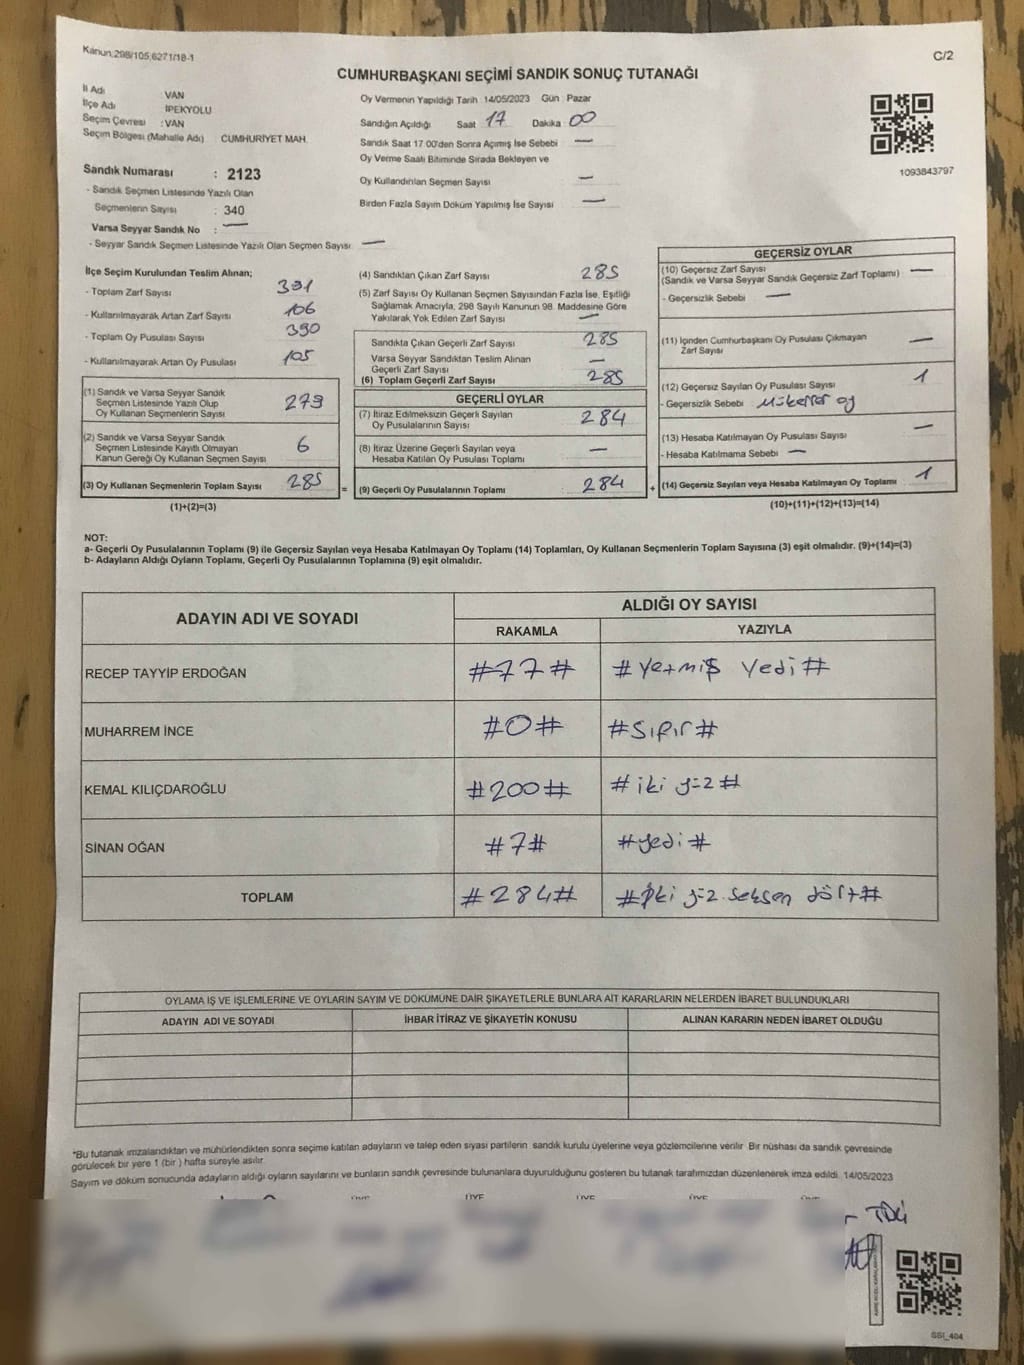 Kanun:298/105;6271/18-1
C/2
CUMHURBAŞKANI SEÇİMİ SANDIK SONUÇ TUTANAĞI
İl Adı : VAN
İlçe Adı : İPEKYOLU
Seçim Çevresi : VAN
Seçim Bölgesi (Mahalle Adı) CUMHURİYET MAH.
Sandık Numarası : 2123
- Sandık Seçmen Listesinde Yazılı Olan
Seçmenlerin Sayısı : 340
Varsa Seyyar Sandık No : —
- Seyyar Sandık Seçmen Listesinde Yazılı Olan Seçmen Sayısı: —
Oy Vermenin Yapıldığı Tarih 14/05/2023 Gün Pazar
Sandığın Açıldığı Saat 17 Dakika 00
Sandık Saat 17:00'den Sonra Açımış İse Sebebi —
Oy Verme Saati Bitiminde Sırada Bekleyen ve
Oy Kullandırılan Seçmen Sayısı —
Birden Fazla Sayım Döküm Yapılmış İse Sayısı —
1093843797
İlçe Seçim Kurulundan Teslim Alınan;
- Toplam Zarf Sayısı 391
- Kullanılmayarak Artan Zarf Sayısı 106
- Toplam Oy Pusulası Sayısı 390
- Kullanılmayarak Artan Oy Pusulası 105
(1) Sandık ve Varsa Seyyar Sandık
Seçmen Listesinde Yazılı Olup
Oy Kullanan Seçmenlerin Sayısı 279
(2) Sandık ve Varsa Seyyar Sandık
Seçmen Listesinde Kayıtlı Olmayan
Kanun Gereği Oy Kullanan Seçmen Sayısı 6
(3) Oy Kullanan Seçmenlerin Toplam Sayısı 285 =
(1)+(2)=(3)
(4) Sandıktan Çıkan Zarf Sayısı 285
(5) Zarf Sayısı Oy Kullanan Seçmen Sayısından Fazla İse, Eşitliği
Sağlamak Amacıyla, 298 Sayılı Kanunun 98. Maddesine Göre
Yakılarak Yok Edilen Zarf Sayısı —
Sandıkta Çıkan Geçerli Zarf Sayısı 285
Varsa Seyyar Sandıktan Teslim Alınan
Geçerli Zarf Sayısı —
(6) Toplam Geçerli Zarf Sayısı 285
GEÇERLİ OYLAR
(7) İtiraz Edilmeksizin Geçerli Sayılan
Oy Pusulalarının Sayısı 284
(8) İtiraz Üzerine Geçerli Sayılan veya
Hesaba Katılan Oy Pusulası Toplamı —
(9) Geçerli Oy Pusulalarının Toplamı 284 +
GEÇERSİZ OYLAR
(10) Geçersiz Zarf Sayısı —
(Sandık ve Varsa Seyyar Sandık Geçersiz Zarf Toplamı)
- Geçersizlik Sebebi —
(11) İçinden Cumhurbaşkanı Oy Pusulası Çıkmayan
Zarf Sayısı —
(12) Geçersiz Sayılan Oy Pusulası Sayısı 1
- Geçersizlik Sebebi : Mükerrer oy
(13) Hesaba Katılmayan Oy Pusulası Sayısı —
- Hesaba Katılmama Sebebi —
(14) Geçersiz Sayılan veya Hesaba Katılmayan Oy Toplamı 1
(10)+(11)+(12)+(13)=(14)
NOT:
a- Geçerli Oy Pusulalarının Toplamı (9) ile Geçersiz Sayılan veya Hesaba Katılmayan Oy Toplamı (14) Toplamları, Oy Kullanan Seçmenlerin Toplam Sayısına (3) eşit olmalıdır. (9)+(14)=(3)
b- Adayların Aldığı Oyların Toplamı, Geçerli Oy Pusulalarının Toplamına (9) eşit olmalıdır.
ADAYIN ADI VE SOYADI
ALDIĞI OY SAYISI
RAKAMLA YAZIYLA
RECEP TAYYİP ERDOĞAN #77# #Yetmiş Yedi#
MUHARREM İNCE #0# #Sıfır#
KEMAL KILIÇDAROĞLU #200# #iki yüz#
SİNAN OĞAN #7# #yedi#
TOPLAM #284# #İki yüz seksen dört#
OYLAMA İŞ VE İŞLEMLERİNE VE OYLARIN SAYIM VE DÖKÜMÜNE DAİR ŞİKAYETLERLE BUNLARA AİT KARARLARIN NELERDEN İBARET BULUNDUKLARI
ADAYIN ADI VE SOYADI İHBAR İTİRAZ VE ŞİKAYETİN KONUSU ALINAN KARARIN NEDEN İBARET OLDUĞU
*Bu tutanak imzalandıktan ve mühürlendikten sonra seçime katılan adayların ve talep eden siyasi partilerin sandık kurulu üyelerine veya gözlemcilerine verilir. Bir nüshası da sandık çevresinde
görülecek bir yere 1 (bir ) hafta süreyle asılır.
Sayım ve döküm sonucunda adayların aldığı oyların sayılarını ve bunların sandık çevresinde bulunanlara duyurulduğunu gösteren bu tutanak tarafımızdan düzenlenerek imza edildi. 14/05/2023
ÜYE ÜYE ÜYE ÜYE ÜYE
SSI_404